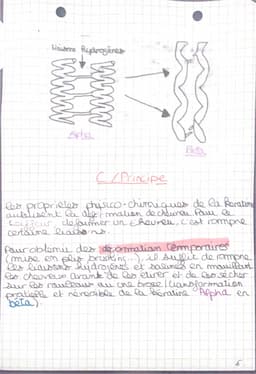 Liaisons Hydrogènes
Alpha
Bêta
C/ Principe
Les propriétés physico-chimiques de la Keratine
autorisent la déformation de cheveu. Pour le
coiffeur, déformer un cheveu, c'est rompre
certaine liaisons.
Pour obtenir des déformation temporaires
(mise en plis, brushing...), il suffit de rompre
les liaisons hydrogènes et salines en mouillant
les cheveux avant de les étirer et de les sécher
sur les rouleaux ou une brosse (transformation
partielle et réversible de la Kératine Alpha en
bêta).